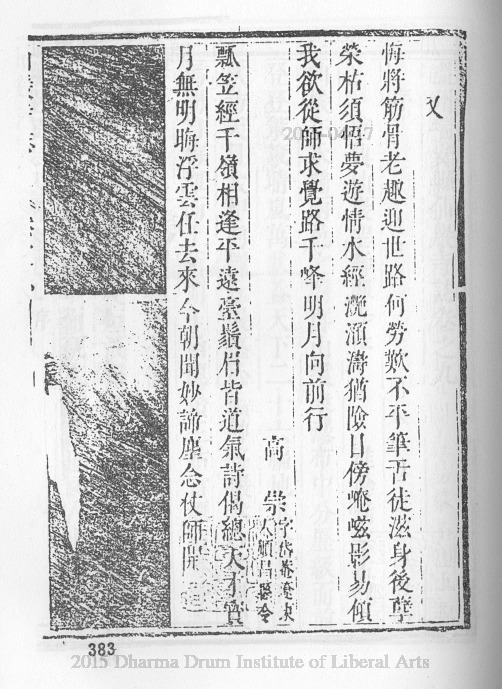 又
悔將筋骨老趣迎世路何勞歎不平筆舌徒滋身後孽
榮枯須悟夢遊情水經灔澦濤猶險日傍崦嵫影易傾
我欲從師求覺路千峰明月向前行
高崇
字岱
人順昌縣令
瓢笠經千嶺相逢平遠臺鬚眉皆道氣詩偈總天才寶
月無明晦浮雲任去來今朝聞妙諦塵念仗師開
383
2015 Dharma Drum Institute of Liberal Arts